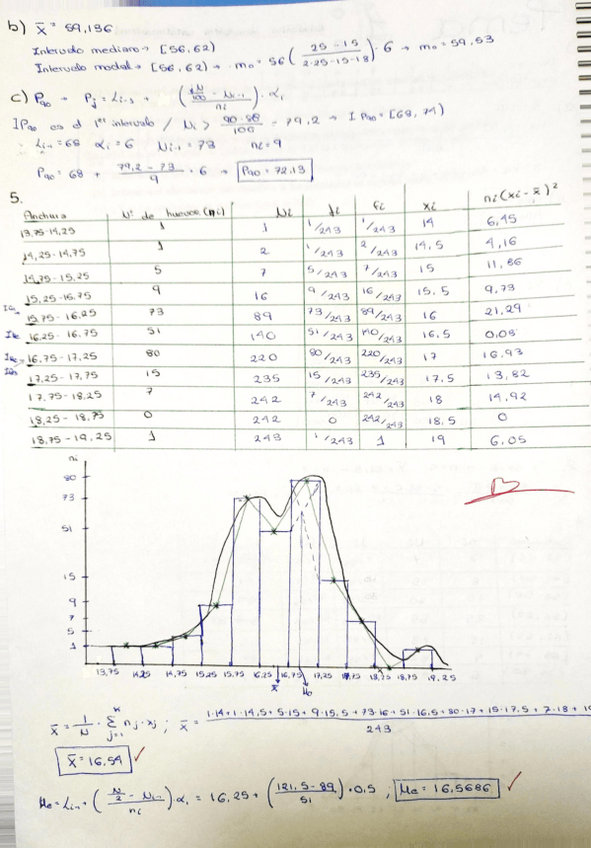 b) x̄ = 59,136
Intervalo mediano → [56, 62)
Intervalo modal → [56, 62) → mo = 56 ( 25 - 15 / 2·25-15-18 ) · 6 → mo = 59,53
c) P90 → Pj = Li-1 + ( jN/100 - Ni-1 / ni ) · αi
I P90 es el 1er intervalo / Ni > 90·88/100 = 79,2 → I P90 = [68, 74)
Li-1 = 68 αi = 6 Ni-1 = 73 ni = 9
P90 = 68 + 79,2 - 73 / 9 · 6 → P90 = 72,13
5.
Anchura Nº de huevos (ni) Ni fi Fi xi ni(xi - x̄)²
13,75-14,25 1 1 1/243 1/243 14 6,45
14,25-14,75 1 2 1/243 2/243 14,5 4,16
14,75-15,25 5 7 5/243 7/243 15 11,86
15,25-15,75 9 16 9/243 16/243 15,5 9,73
15,75-16,25 73 89 73/243 89/243 16 21,29
16,25-16,75 51 140 51/243 140/243 16,5 0,08
16,75-17,25 80 220 80/243 220/243 17 16,93
17,25-17,75 15 235 15/243 235/243 17,5 13,82
17,75-18,25 7 242 7/243 242/243 18 14,92
18,25-18,75 0 242 0 242/243 18,5 0
18,75-19,25 1 243 1/243 1 19 6,05
ni
80
73
51
15
9
7
5
1
13,75 14,25 14,75 15,25 15,75 16,25 16,75 17,25 17,75 18,25 18,75 19,25
x̄ Mo
x̄ = 1/N · Σ nj·xj ; x̄ = 1·14+1·14,5+5·15+9·15,5+73·16+51·16,5+80·17+15·17,5+7·18+19 / 243
x̄ = 16,54 ✓
Me = Li-1 + ( N/2 - Ni-1 / ni ) αi = 16,25 + ( 121,5 - 89 / 51 ) · 0,5 ; Me = 16,5686 ✓